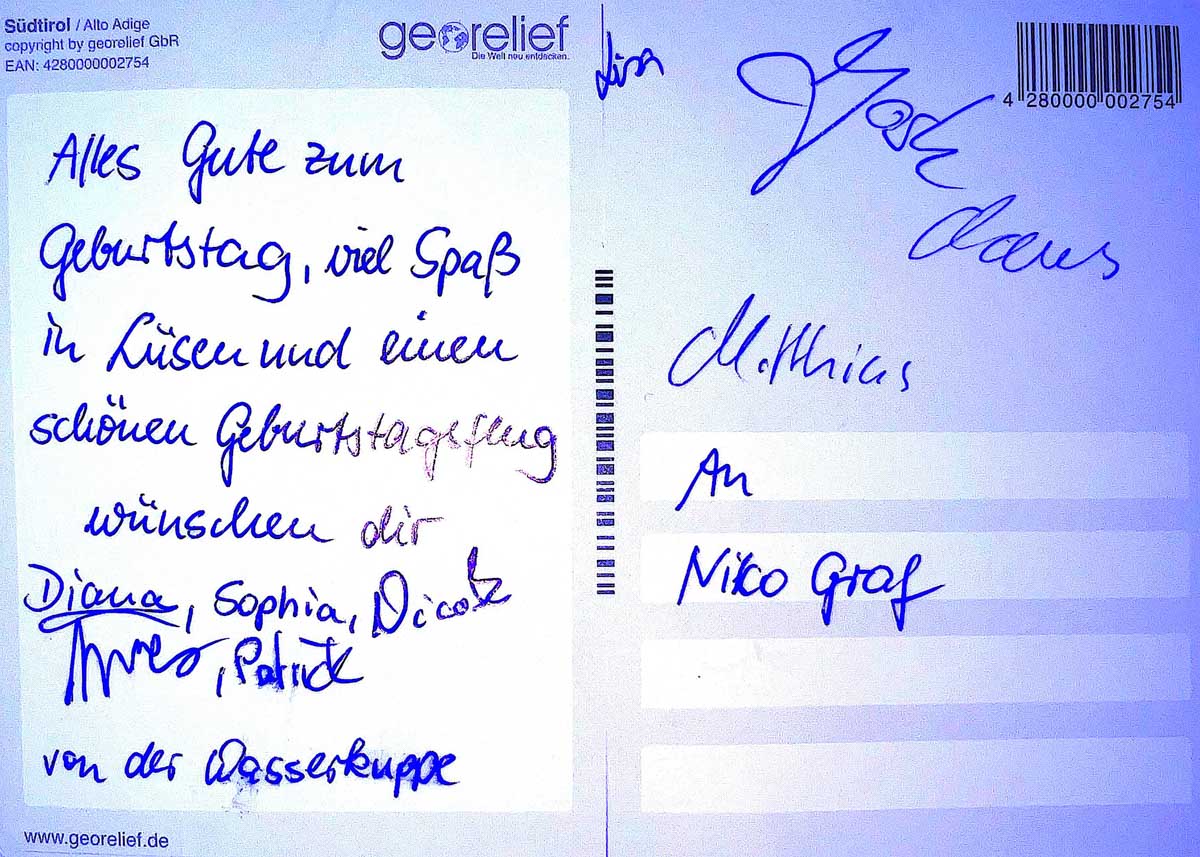 Südtirol / Alto Adige
copyright by georelief GbR
EAN: 4280000002754
georelief
Die Welt neu entdecken.
Alles Gute zum
Geburtstag, viel Spaß
in Lüsen und einen
schönen Geburtstagsflug
wünschen dir
Diana, Sophia, Nicole
, Patrick
von der Wasserkuppe
www.georelief.de
Lisa
4 280000 002754
Matthias
An
Niko Graf